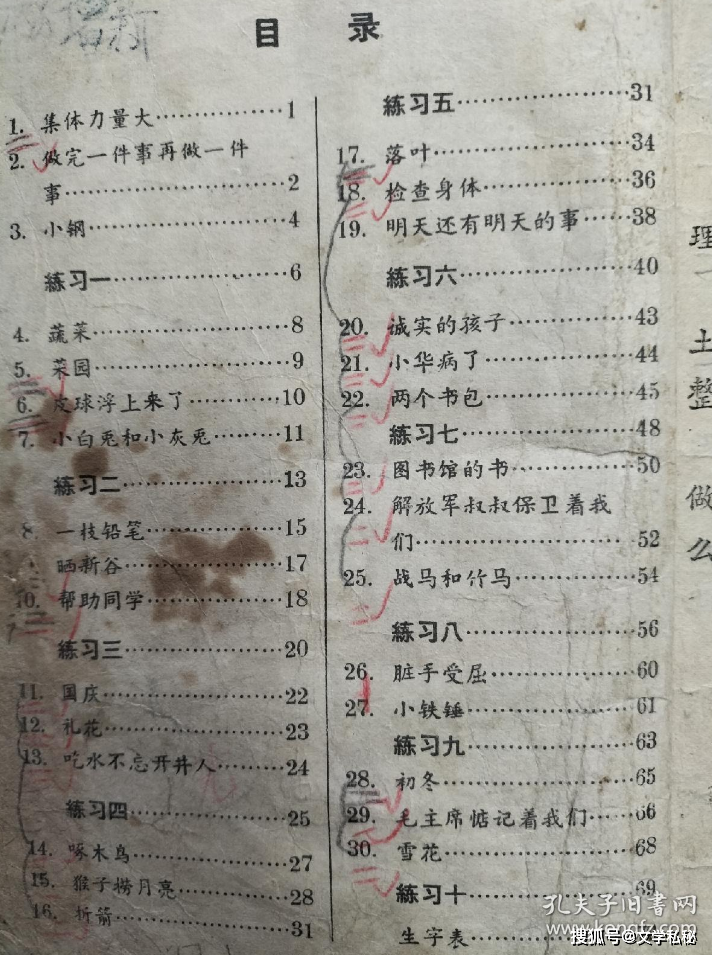 目 录
1. 集体力量大……………1
2. 做完一件事再做一件
事……………2
3. 小钢……………4
練习一……………6
4. 蔬菜……………8
5. 菜园……………9
6. 皮球浮上来了……………10
7. 小白兎和小灰兎……………11
練习二……………13
8. 一枝铅笔……………15
晒新谷……………17
10. 帮助同学……………18
練习三……………20
11. 国庆……………22
12. 礼花……………23
13. 吃水不忘开井人……………24
練习四……………25
14. 啄木鸟……………27
15. 猴子捞月亮……………28
16. 折箭……………31
練习五……………31
17. 落叶……………34
18. 检查身体……………36
19. 明天还有明天的事……38
練习六……………40
20. 诚实的孩子……………43
21. 小华病了……………44
22. 两个书包……………45
練习七……………48
23. 图书馆的书……………50
24. 解放军叔叔保卫着我
们……………52
25. 战马和竹马……………54
練习八……………56
26. 脏手受屈……………60
27. 小铁锤……………61
練习九……………63
28. 初冬……………65
29. 毛主席惦记着我们……66
30. 雪花……………68
練习十……………69
生字表……………
理
土
整
做
么
孔夫子旧书网
www.kongfz.com
搜狐号@文学私秘